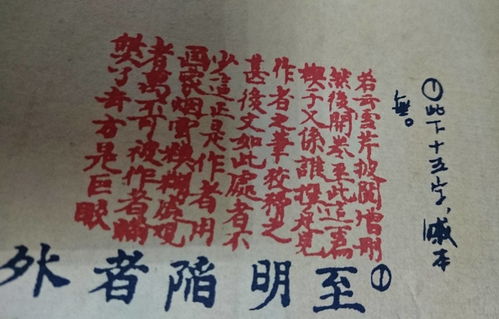 ①此下十五字、戚本
無。
若云雪芹披閱增刪
然後開卷至此這一篇
楔子又係誰撰足見
作者之筆狡猾之
甚後文如此處者不
少這正是作者用
画家烟雲模糊處觀
者萬不可被作者瞞
獘了去方是巨眼
①至
明
陷
者
外